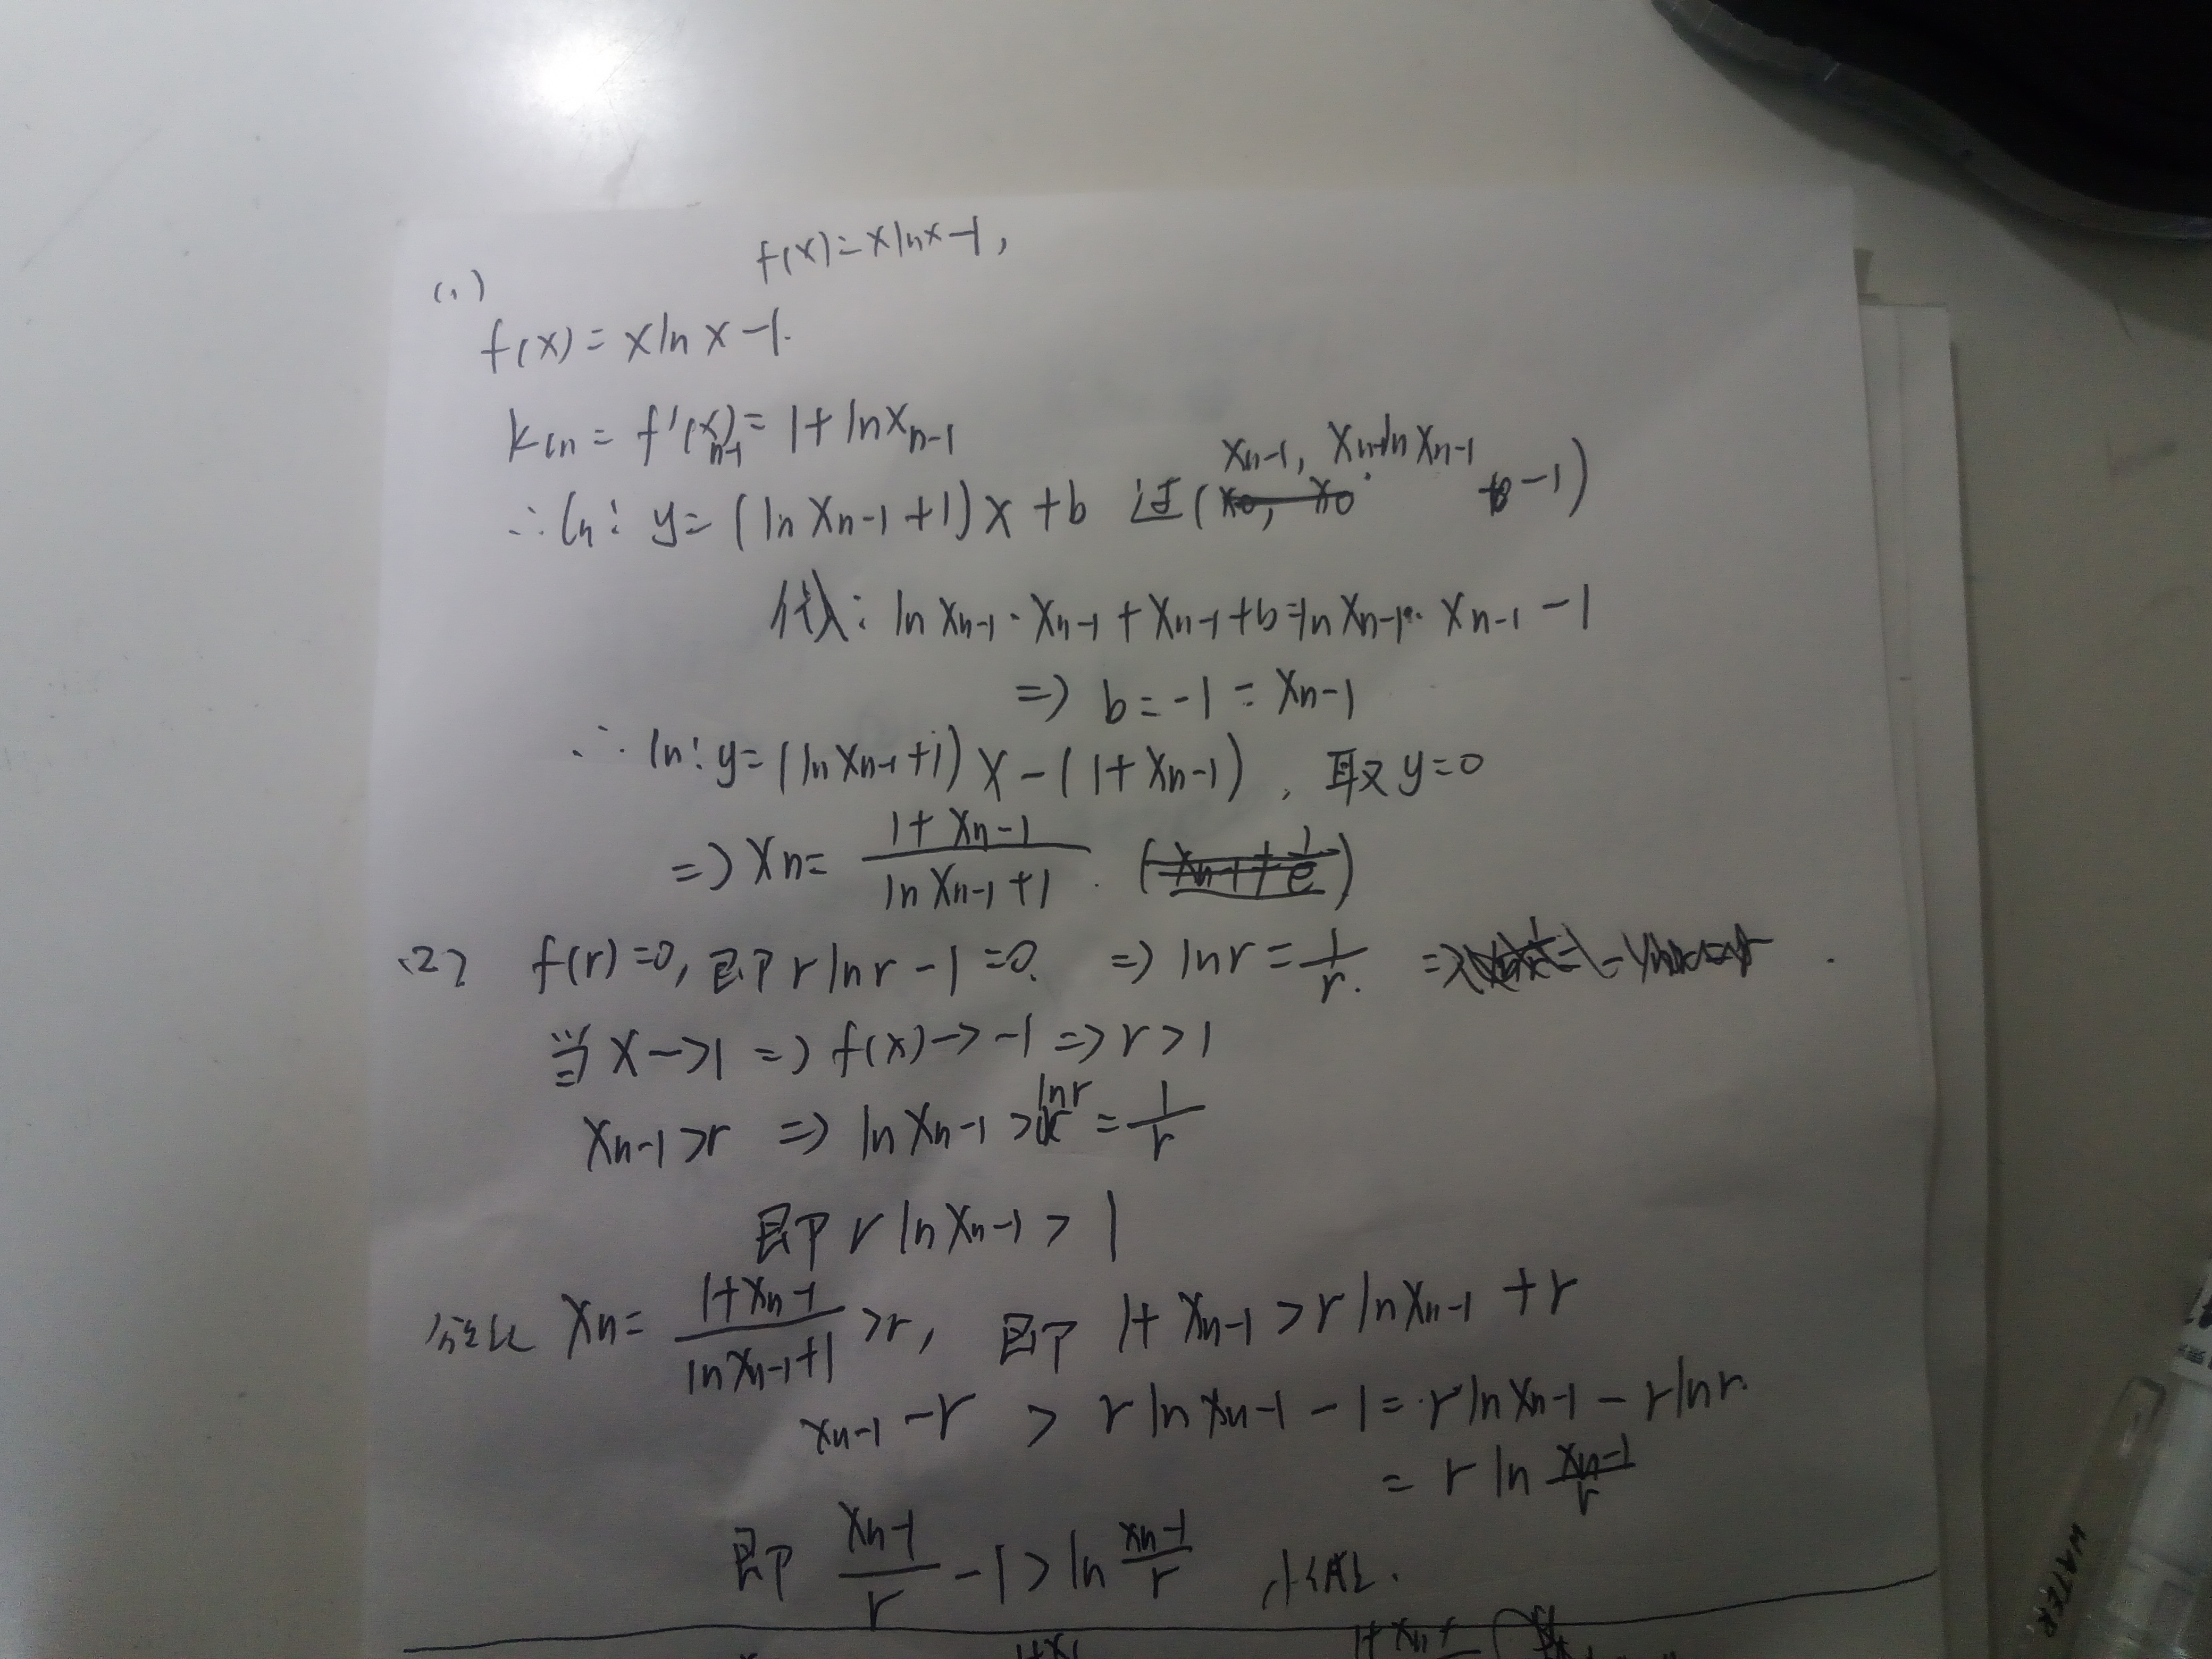 f(x)=xlnx-1,
(1)
f(x)=xlnx-1.
k ln = f'(x n-1)= 1+lnx n-1
∴ ln: y=(lnx n-1+1)x+b 过(x n-1, x n-1 lnx n-1 -1)
代入: lnx n-1·x n-1+x n-1+b=lnx n-1·x n-1-1
=> b=-1=x n-1
∴ ln: y=(lnx n-1+1)x-(1+x n-1), 取y=0
=> xn= (1+x n-1)/(lnx n-1+1).
(2) f(r)=0, 即rlnr-1=0. => lnr=1/r.
当x->1 => f(x)->-1 => r>1
x n-1>r => lnx n-1>lnr=1/r
即rlnx n-1>1
xn= (1+x n-1)/(lnx n-1+1)>r, 即1+x n-1>rlnx n-1+r
x n-1-r>rlnx n-1-1=rlnx n-1-rlnr.
=rln x n-1/r
即 x n-1/r -1>ln x n-1/r